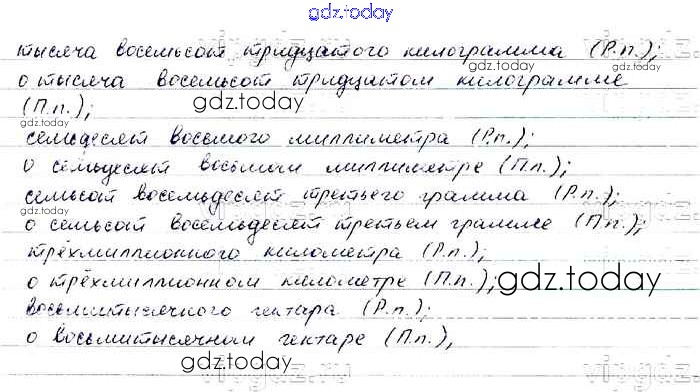 gdz.today
тысяча восемьсот тридцатого килограмма (Р.п.);
gdz.today gdz.today
о тысяча восемьсот тридцатом килограмме
gdz.today
(П.п.);
gdz.today
семьдесят восьмого миллиметра (Р.п.);
о семьдесят восьмом миллиметре (П.п.);
семьсот восемьдесят третьего грамма (Р.п.);
gdz.today
о семьсот восемьдесят третьем грамме (П.п.);
gdz.today
трёхмиллионного километра (Р.п.);
о трёхмиллионном километре (П.п.);
gdz.today
восьмитысячного гектара (Р.п.);
о восьмитысячном гектаре (П.п.),
gdz.today